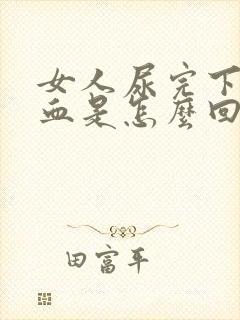 女人尿完下
血是怎麼回
田富平